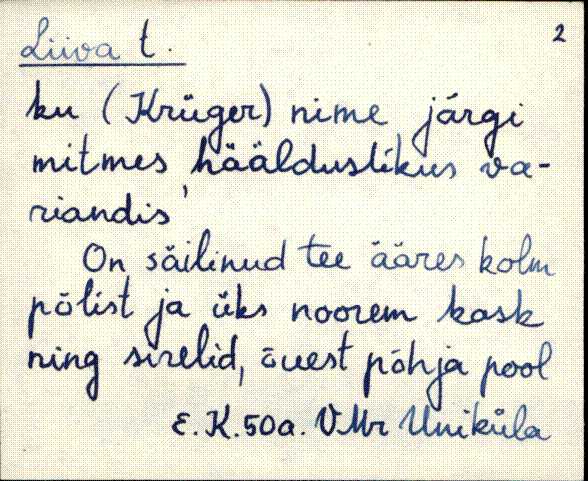 Liiva t. 2
ku (Krüger) nime järgi
mitmes häälduslikus va-
riandis'
On säilinud tee ääres kolm
põlist ja üks noorem kask
ning sirelid, õuest põhja pool
E.K. 50a. VMr Uniküla